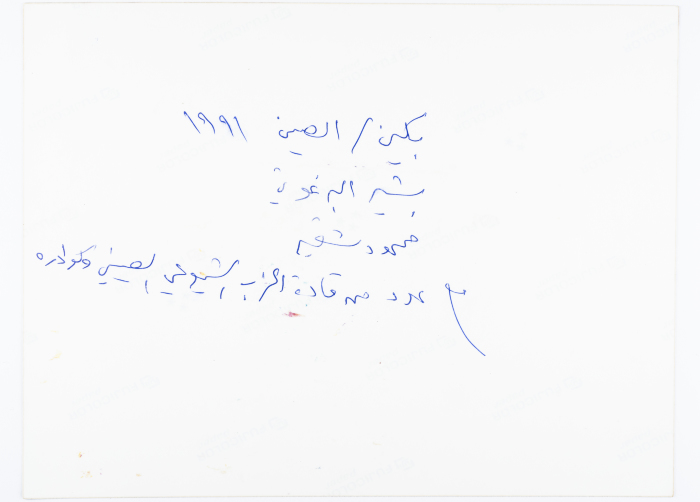 بكين / الصين ١٩٩١
بشير البرغوثي
محمود شقير
مع عدد من قادة الحزب الشيوعي الصيني وكوادره